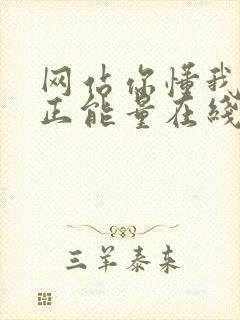 网佔你懂我
正能量在线
三羊泰来